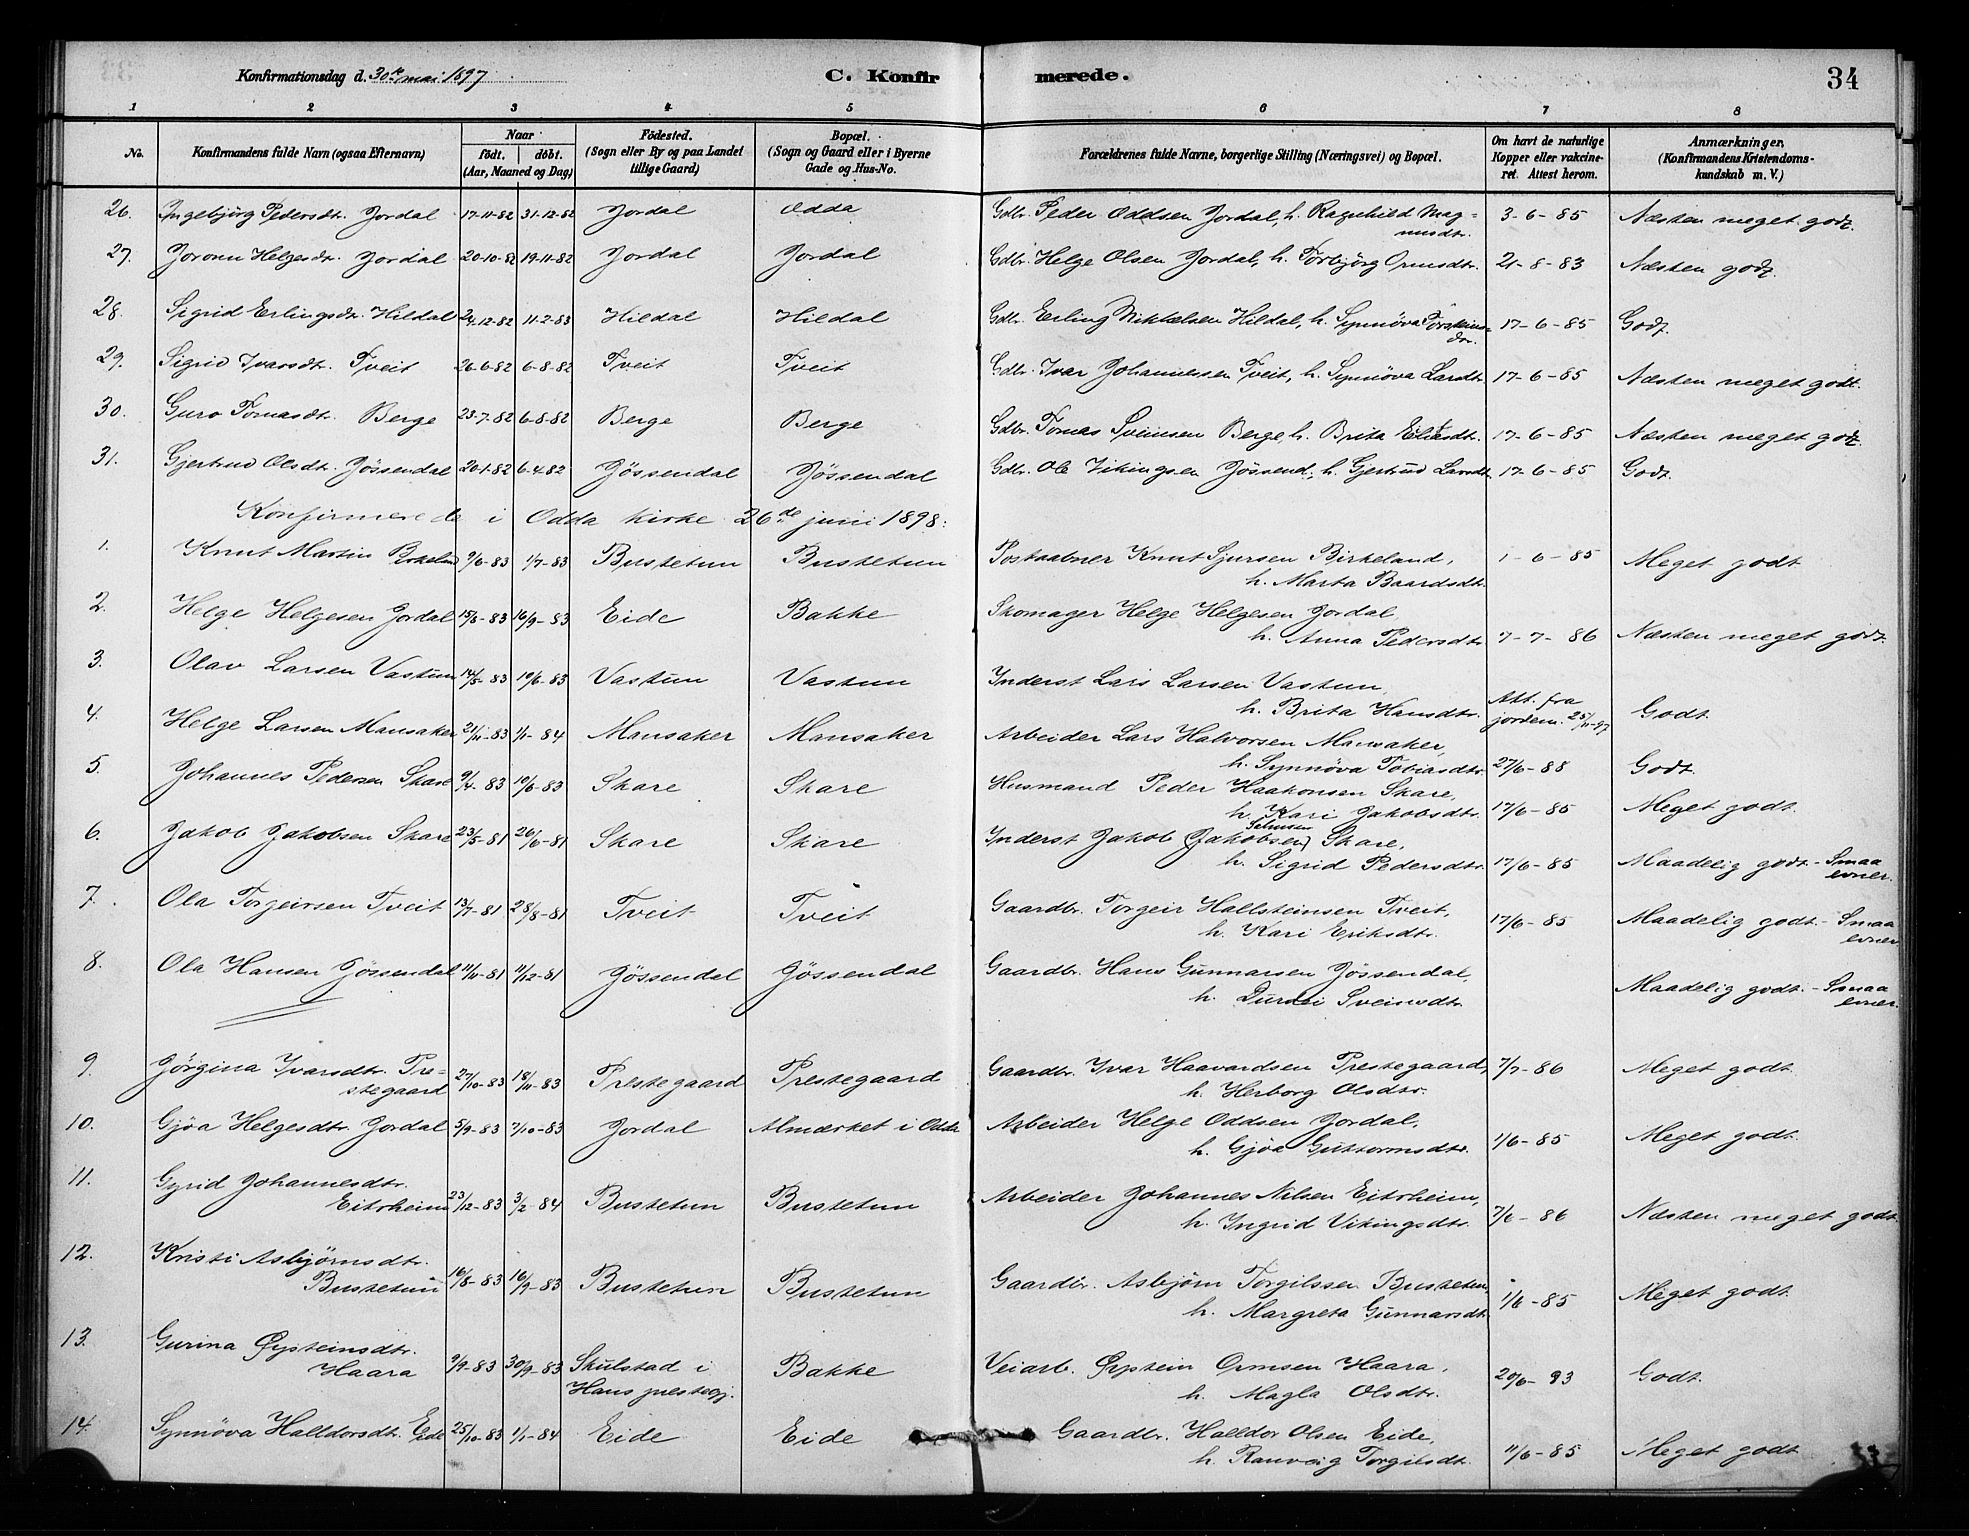 Konfirmationsdag d. 30te mai 1897
C. Konfirmerede.
34
1 2 3 4 5 6 7 8
No.
Konfirmandens fulde Navn (ogsaa Efternavn)
Naar
født. døbt.
(Aar, Maaned og Dag)
Födested.
(Sogn eller By og paa Landet
tillige Gaard)
Bopæl.
(Sogn og Gaard eller i Byerne
Gade og Hus-No.
Forældrenes fulde Navne, borgerlige Stilling (Næringsvei) og Bopæl.
Om havt de naturlige
Kopper eller vakcine-
ret. Attest herom.
Anmærkninger.
(Konfirmandens Kristendoms-
kundskab m. V.)
26. Ingebjörg Pedersdt. Jordal 17-11-82 31-12-82 Jordal Odda Gdbr. Peder Oddsen Jordal, h. Ragnhild Mag= 3-6-85 Næsten meget godt.
nusdtr.
27. Joronn Helgesdt. Jordal 20-10-82 19-11-82 Jordal Jordal Gdbr. Helge Olsen Jordal, h. Torbjörg Ormsdtr. 21-8-83 Næsten godt.
28. Sigrid Erlingsdt. Hildal 24-12-82 11-2-83 Hildal Hildal Gdbr. Erling Mikkelsen Hildal, h. Synnöva 17-6-85 Godt.
29. Sigrid Ivarsdt. Tveit 26-6-82 6-8-82 Tveit Tveit Gdbr. Ivar Johannessen Tveit, h. Synnöva Larsdt. 17-6-85 Næsten meget godt.
30. Guro Tomasdt. Berge 23-7-82 6-8-82 Berge Berge Gdbr. Tomas Sveinsen Berge, h. Brita Eliasdt. 17-6-85 Næsten meget godt.
31. Gjertrud Olsdt. Jössendal 20-1-82 6-4-82 Jössendal Jössendal Gdbr. Ole Vikingsen Jössend., h. Gjertrud Larsdt. 17-6-85 Godt.
Konfirmerede i Odda kirke 26de juni 1898:
1. Knut Martin Birkeland 9/6-83 1/7-83 Bustetun Bustetun Postaabner Knut Sjursen Birkeland, 1-6-85 Meget godt
h. Marta Baardsdt.
2. Helge Helgesen Jordal 15/8-83 16/9-83 Eide Bakke Skomager Helge Helgesen Jordal,
h. Anna Pedersdtr. 7-7-86 Næsten meget godt.
3. Olav Larsen Vastun 14/5-83 10/6-83 Vastun Vastun Inderst Lars Larsen Vastun,
h. Brita Hansdtr. Att. fra
jordem. 25/11-97 Godt.
4. Helge Larsen Mansaker 21/11-83 1/1-84 Mansaker Mansaker Arbeider Lars Halvorsen Mansaker,
h. Synnöva Tobiasdtr. 27/6-88 Godt.
5. Johannes Pedersen Skare 9/4-83 10/6-83 Skare Skare Husmand Peder Haakonsen Skare,
h. Kari Jakobsdtr. 17/6-85 Meget godt.
6. Jakob Jakobsen Skare 23/5-81 26/6-81 Skare Skare Inderst Jakob (Jakobsen) Skare,
h. Sigrid Pedersdtr. 17/6-85 Maadelig godt. - Smaa
evner.
7. Ola Torgeirsen Tveit 13/7-81 28/8-81 Tveit Tveit Gaardbr. Torgeir Hallsteinsen Tveit,
h. Kari Eriksdtr. 17/6-85 Maadelig godt. - Smaa
evner.
8. Ola Hansen Jössendal 11/11-81 11/12-81 Jössendal Jössendal Gaardbr. Hans Gunnarsen Jössendal,
h. Durdei Sveinsdtr. Maadelig godt. - Smaa
evner.
9. Jörgina Ivarsdtr. Pre=
stegaard 27/10-83 18/11-83 Prestegaard Prestegaard Gaardbr. Ivar Haavardsen Prestegaard, 7/7-86 Meget godt.
h. Herborg Olsdtr.
10. Gjöa Helgesdtr. Jordal 5/9-83 7/10-83 Jordal Almærket i Odda Arbeider Helge Oddsen Jordal,
h. Gjöa Guttormsdtr. 1/6-85 Meget godt.
11. Gyrid Johannesdtr.
Eitrheim 23/12-83 3/2-84 Bustetun Bustetun Arbeider Johannes Nilsen Eitrheim,
h. Ingrid Vikingsdtr. 7/6-86 Næsten meget godt.
12. Kristi Asbjørnsdtr.
Bustetun 16/8-83 16/9-83 Bustetun Bustetun Gaardbr. Asbjørn Torgilssen Bustetun,
h. Margreta Gunnarsdt. 1/6-85 Meget godt.
13. Gurina Øysteinsdtr.
Haara 9/9-83 30/9-83 Skulstad i
Hans prestegj. Bakke Veiarb. Øystein Ormsen Haara,
h. Magla Olsdtr. 20/6-93 Godt.
14. Synnöva Halldorsdt. Eide 25/10-83 1/1-84 Eide Eide Gaardbr. Halldor Olsen Eide,
h. Ranveig Torgilsdt. 11/6-85 Meget godt